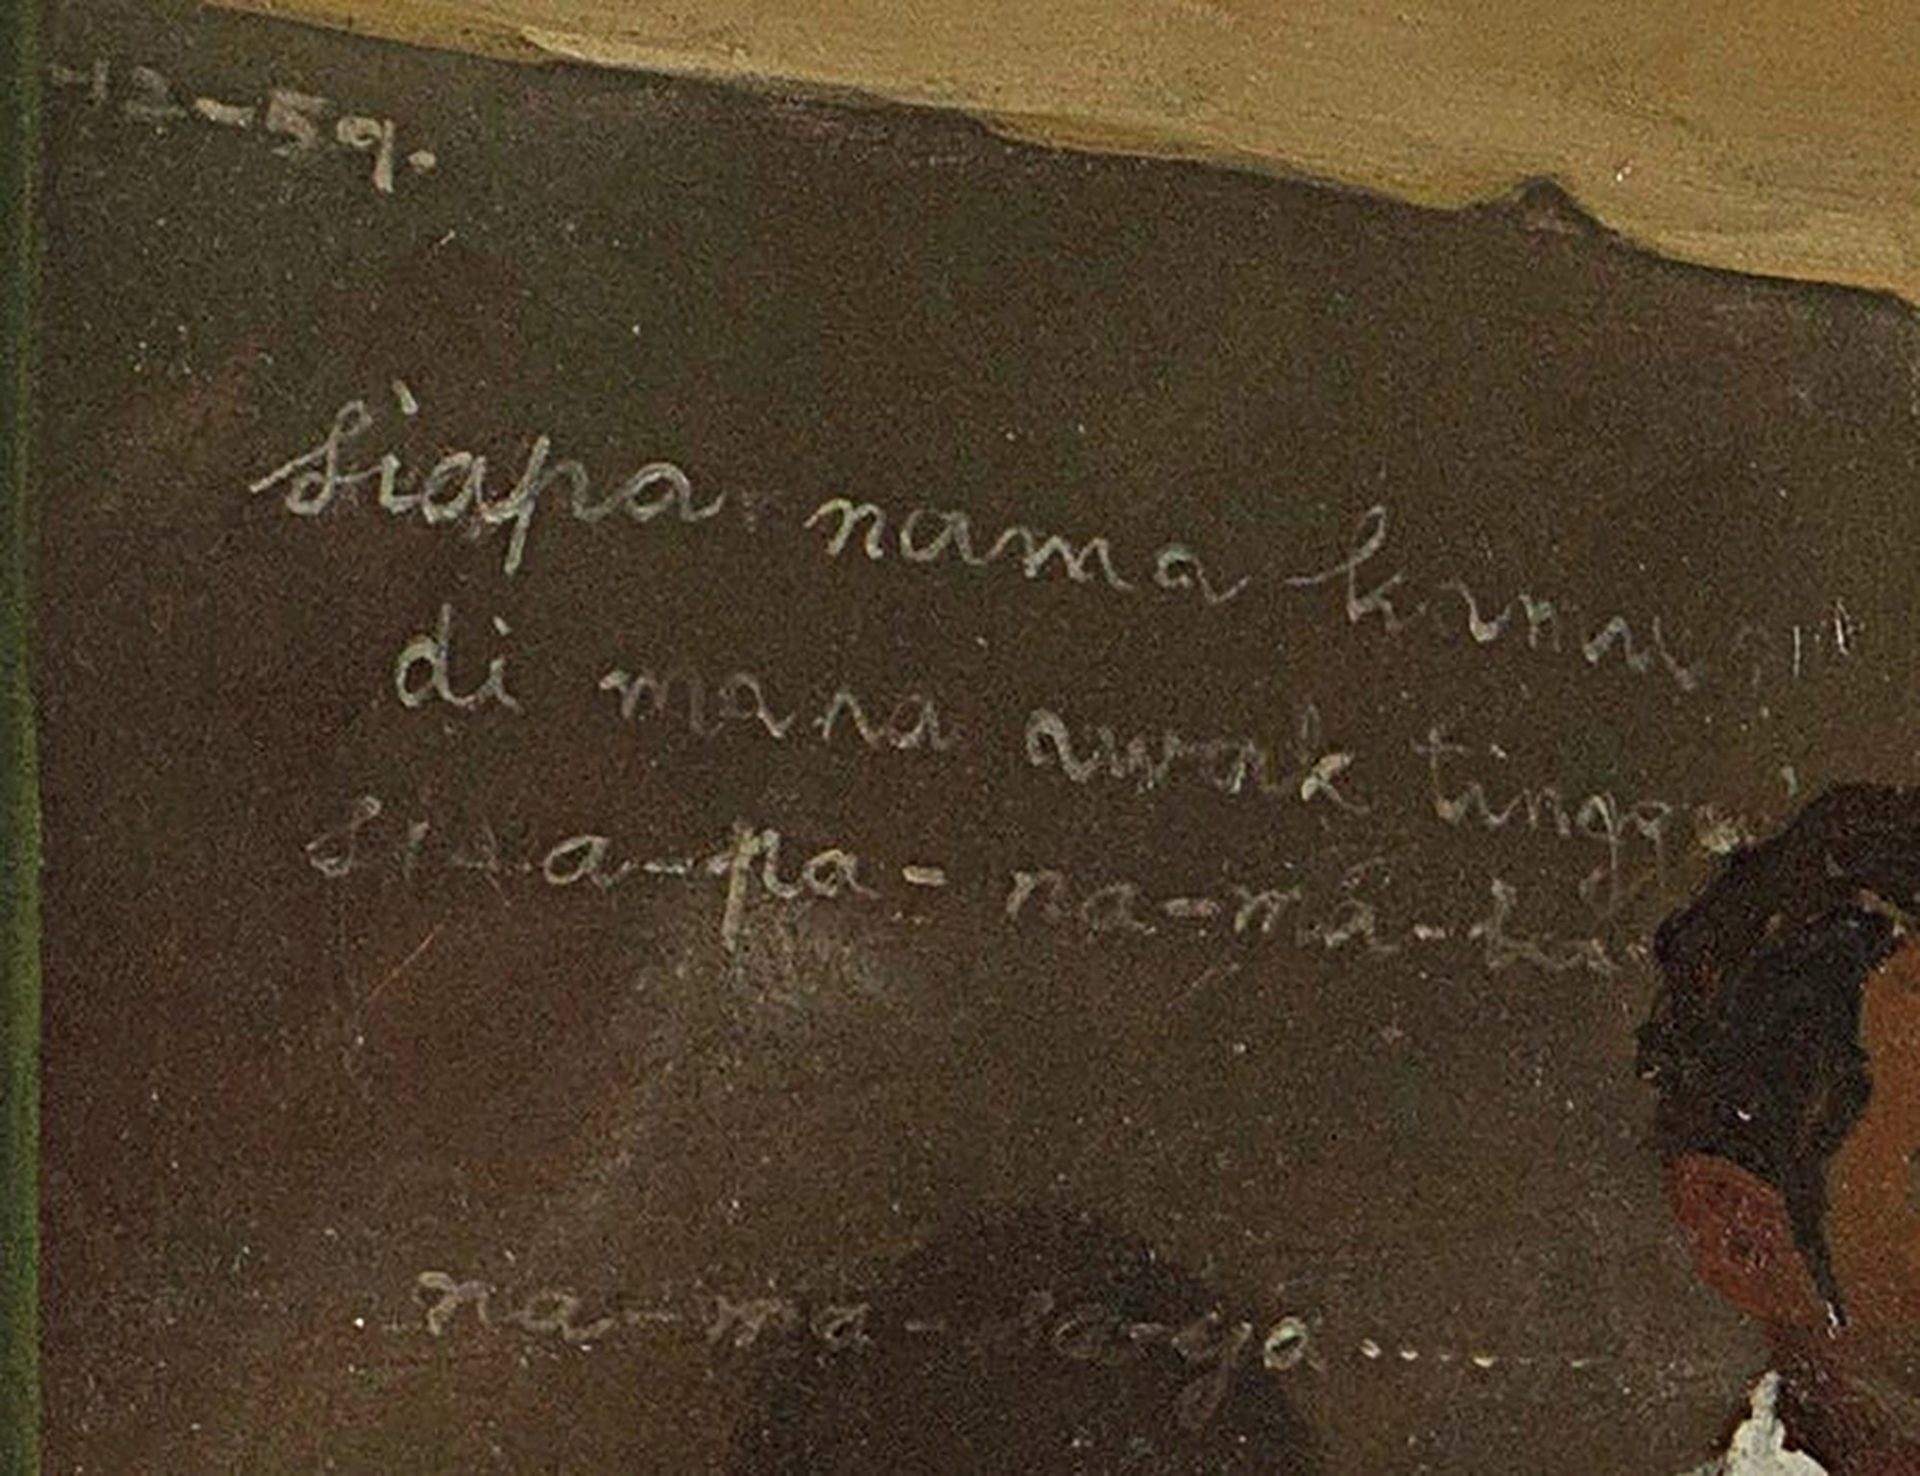 12-59.
Siapa nama kamu
di mana awak tinggal
Si-a-pa-na-ma-ka
na-ma-sa-ya......